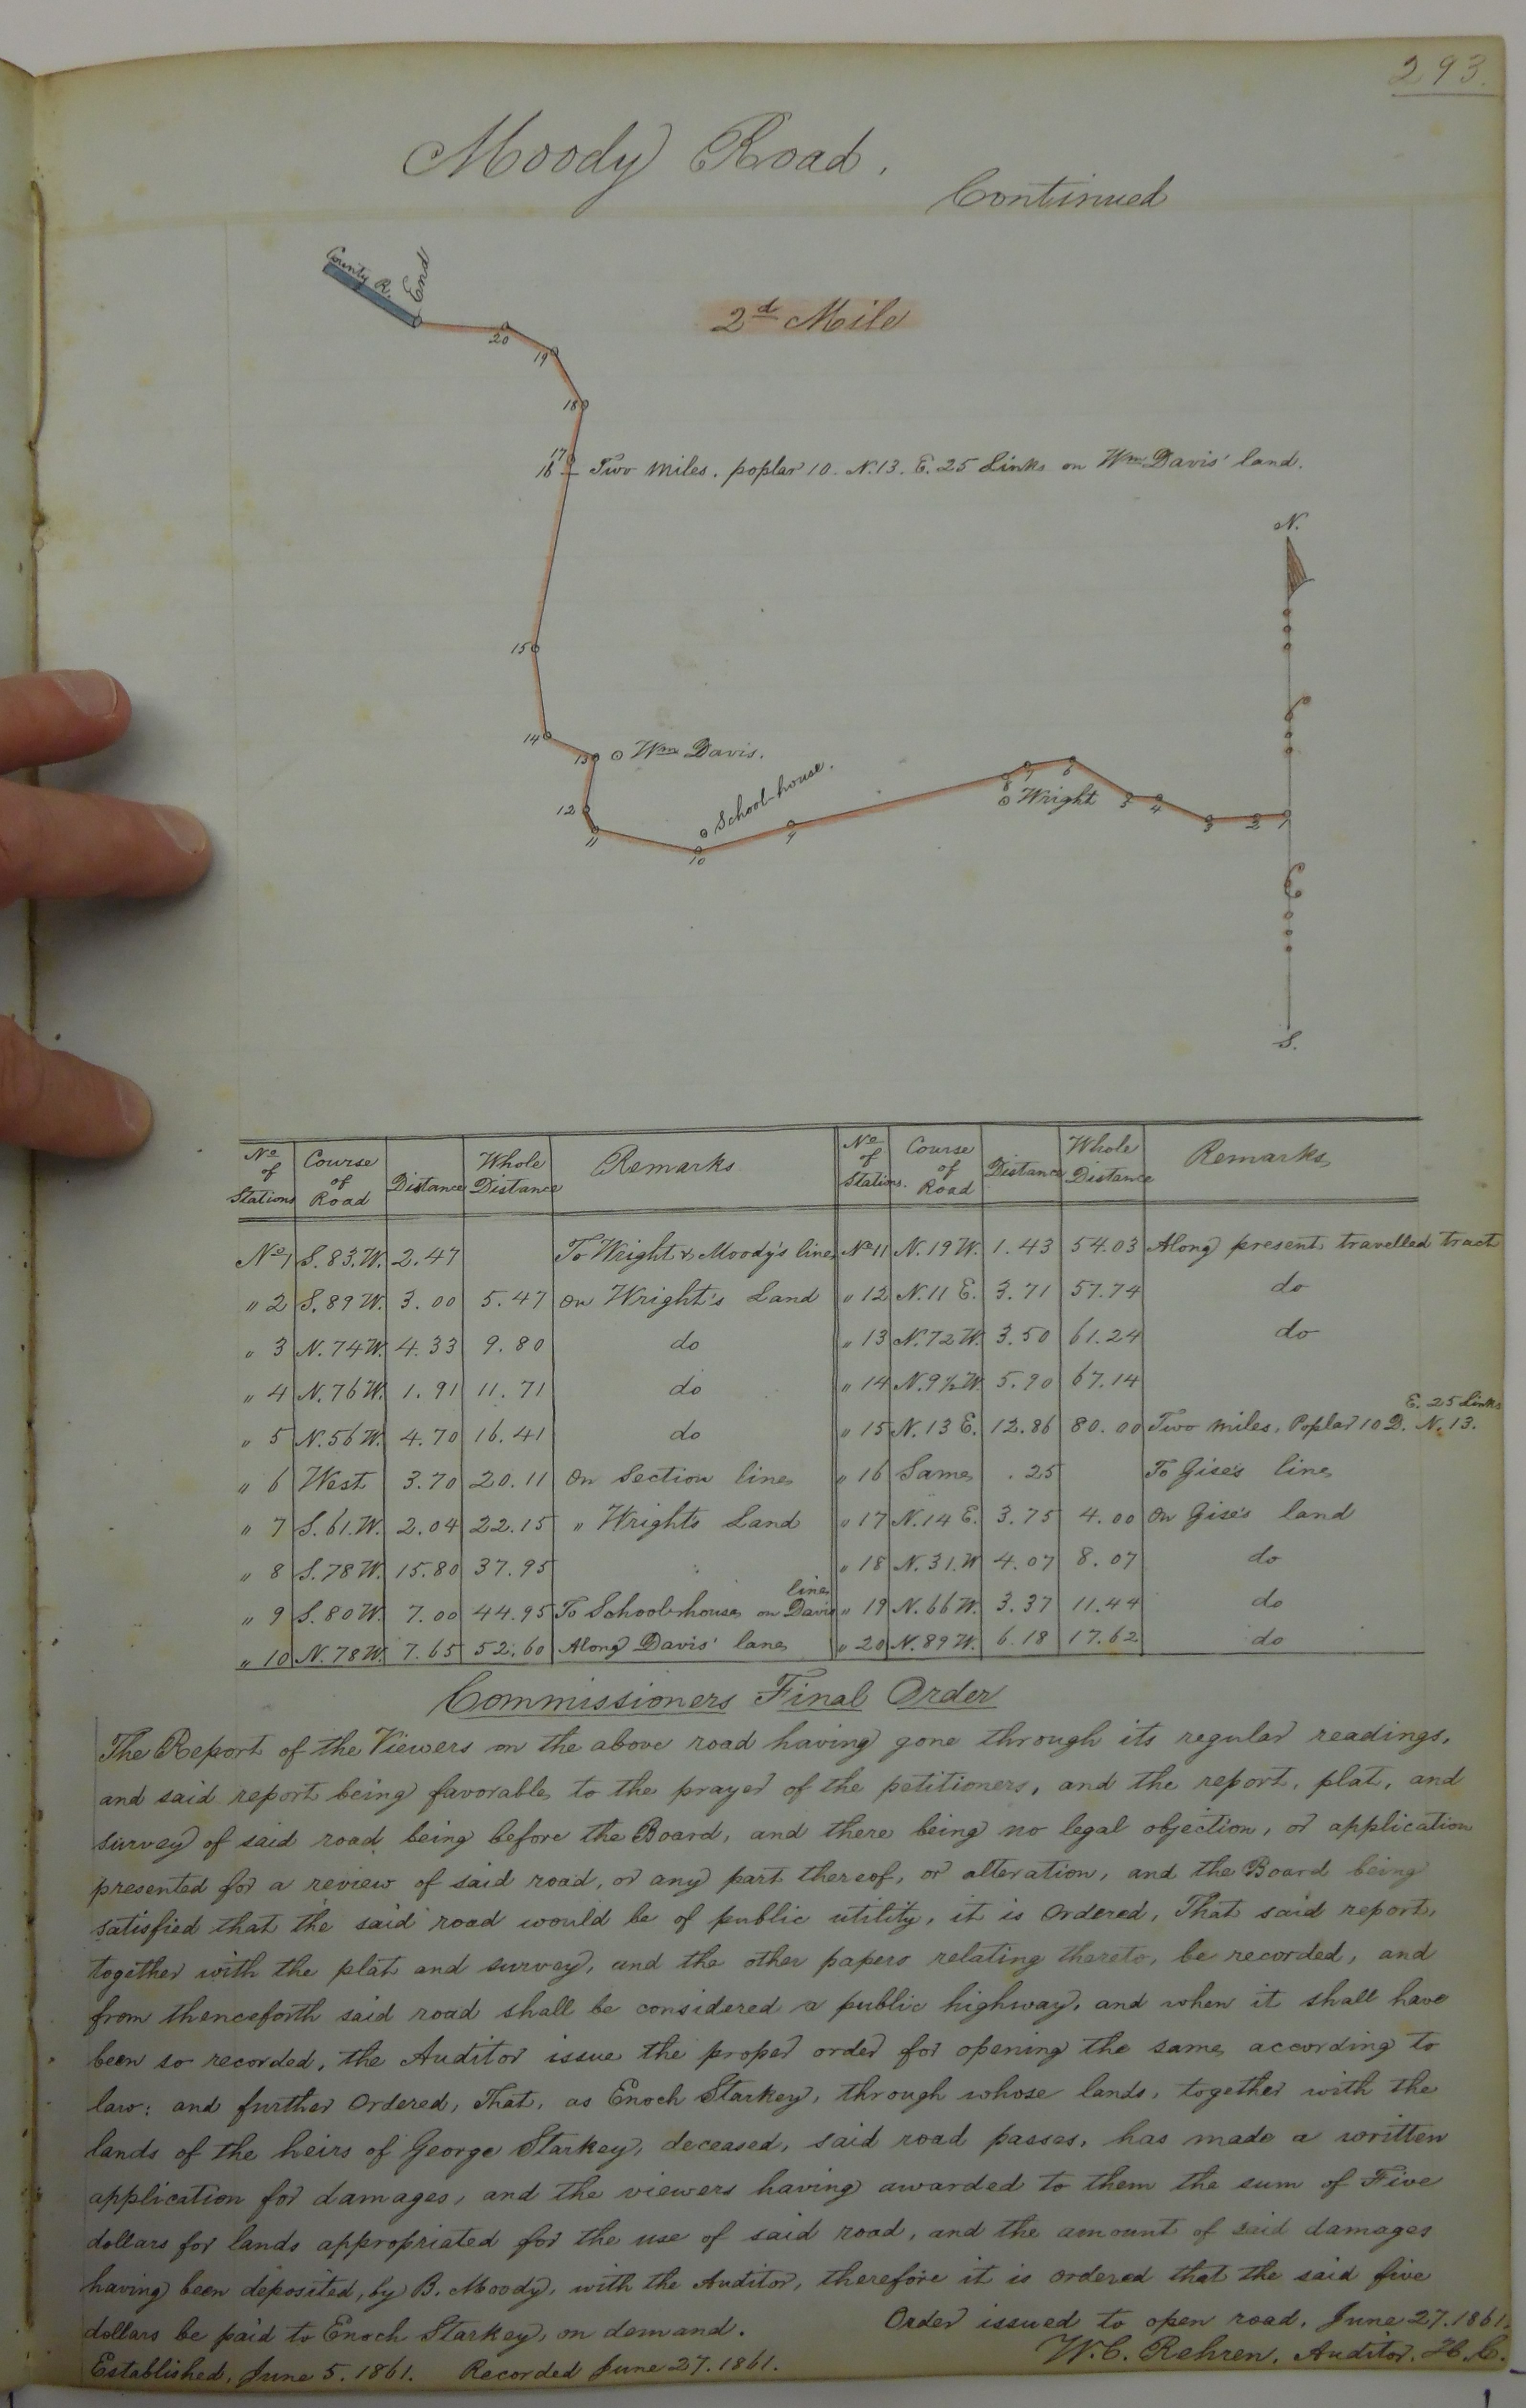 293.
Moody Road.
Continued
County R.
End
2d Mile
20
19
18
17
16 Two miles. poplar 10. N. 13. E. 25 Links on Wm Davis' land.
N.
15
14
13 Wm Davis.
School-house.
12
11
10
9
8
7
6
Wright
5
4
3
2
1
S.
No of Stations | Course of Road | Distance | Whole Distance | Remarks | No of Stations. | Course of Road | Distance | Whole Distance | Remarks
No 1 | S. 83. W. | 2.47 | | To Wright & Moody's line | No 11 | N. 19 W. | 1.43 | 54.03 | Along present travelled tract
" 2 | S. 89 W. | 3.00 | 5.47 | on Wright's Land | " 12 | N. 11 E. | 3.71 | 57.74 | do
" 3 | N. 74 W. | 4.33 | 9.80 | do | " 13 | N. 72 W. | 3.50 | 61.24 | do
" 4 | N. 76 W. | 1.91 | 11.71 | do | " 14 | N. 9½ W. | 5.90 | 67.14
" 5 | N. 56 W. | 4.70 | 16.41 | do | " 15 | N. 13 E. | 12.86 | 80.00 | Two miles, Poplar 10 D. N. 13. E. 25 Links
" 6 | West | 3.70 | 20.11 | on Section line | " 16 | Same | .25 | | To Gise's line
" 7 | S. 61. W. | 2.04 | 22.15 | " Wright's Land | " 17 | N. 14 E. | 3.75 | 4.00 | on Gise's land
" 8 | S. 78 W. | 15.80 | 37.95 | " | " 18 | N. 31. W | 4.07 | 8.07 | do
" 9 | S. 80 W. | 7.00 | 44.95 | To School-house on Davis line | " 19 | N. 66 W. | 3.37 | 11.44 | do
" 10 | N. 78 W. | 7.65 | 52.60 | Along Davis' lane | " 20 | N. 89 W. | 6.18 | 17.62 | do
Commissioners Final Order
The Report of the Viewers on the above road having gone through its regular readings,
and said report being favorable to the prayer of the petitioners, and the report, plat, and
survey of said road being before the Board, and there being no legal objection, or application
presented for a review of said road, or any part thereof, or alteration, and the Board being
satisfied that the said road would be of public utility, it is Ordered, That said report,
together with the plat and survey, and the other papers relating thereto, be recorded, and
from thenceforth said road shall be considered a public highway, and when it shall have
been so recorded, the Auditor issue the proper order for opening the same according to
law: and further Ordered, That, as Enoch Starkey, through whose lands, together with the
lands of the heirs of George Starkey, deceased, said road passes, has made a written
application for damages, and the viewers having awarded to them the sum of Five
dollars for lands appropriated for the use of said road, and the amount of said damages
having been deposited, by B. Moody, with the Auditor, therefore it is ordered that the said five
dollars be paid to Enoch Starkey, on demand. Order issued to open road. June 27. 1861.
Established, June 5. 1861. Recorded June 27. 1861. W.C. Rehren. Auditor. H.C.